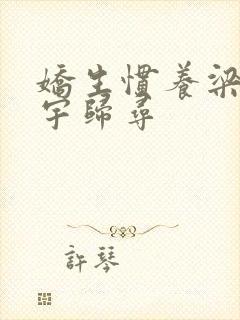 嬌生慣養梁
宇歸尋
許琴